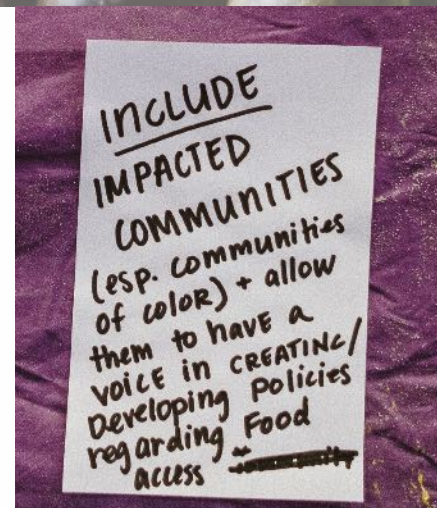 INCLUDE
IMPACTED
COMMUNITIES
(esp. communities
of coloR) + allow
them to havE a
voicE in CREATING/
Developing policies
regarding Food
access